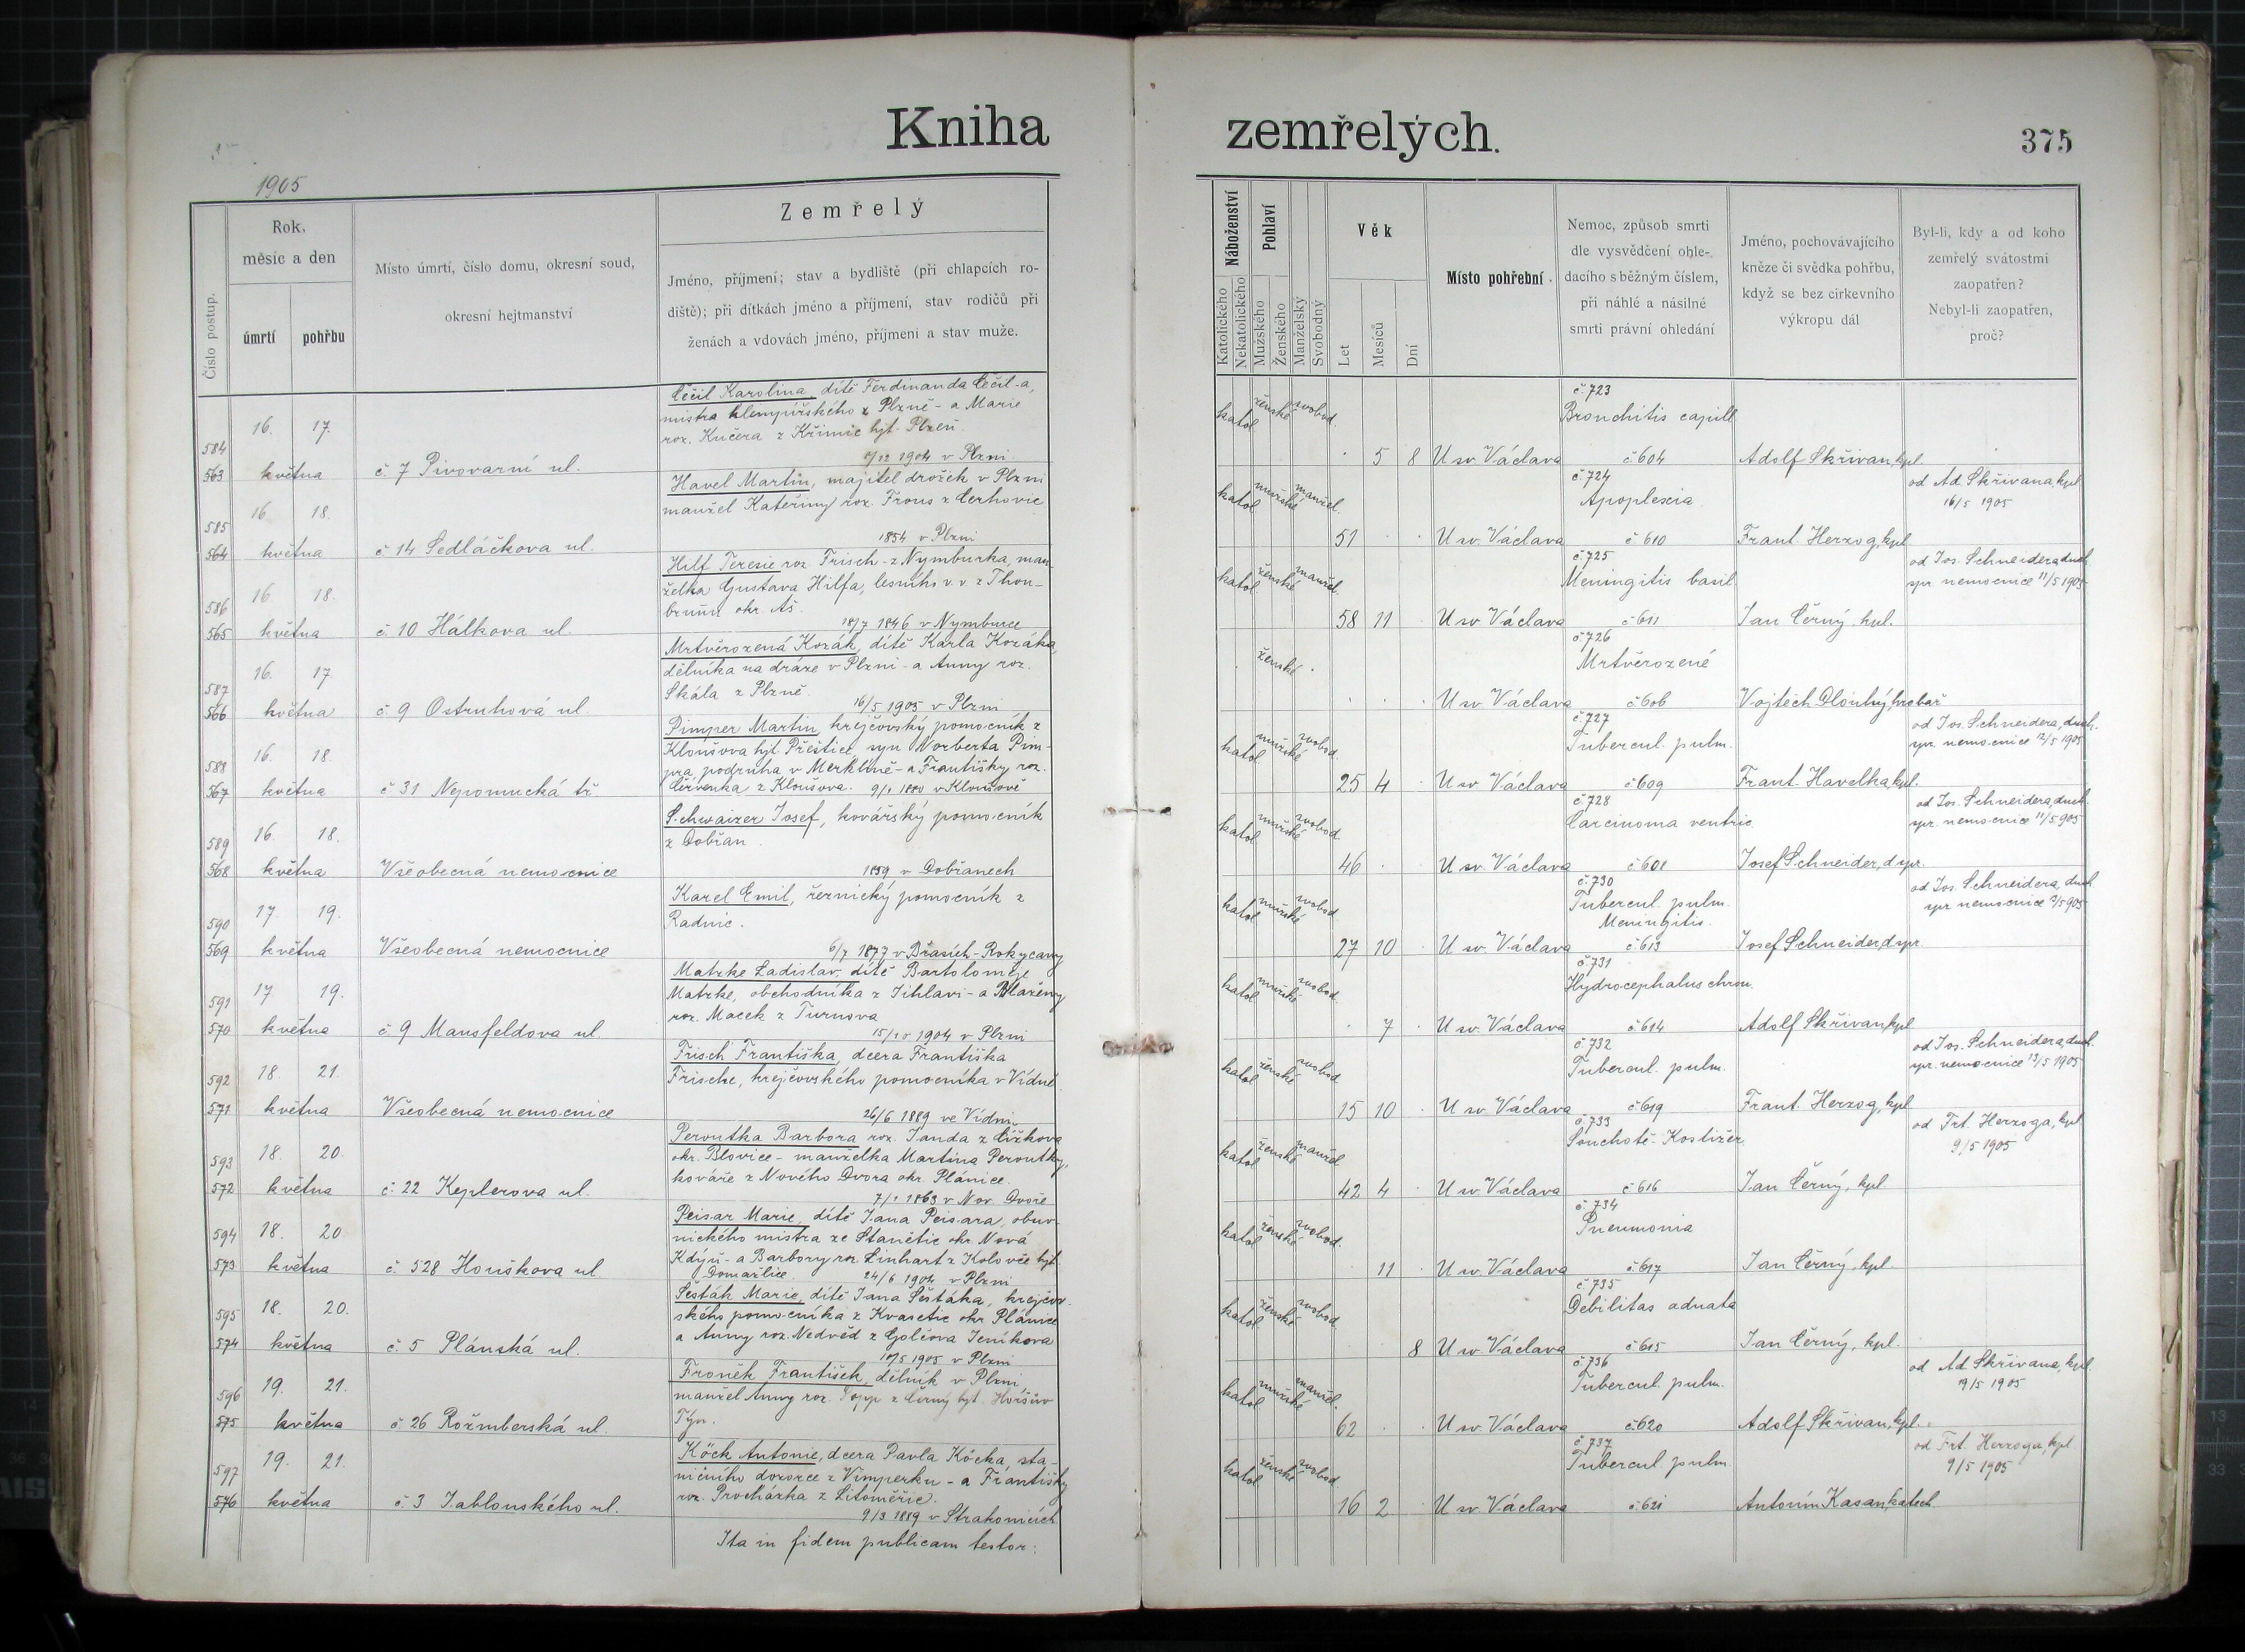 Kniha zemřelých.
375
1905
Číslo postup.
Rok, měsíc a den
úmrtí
pohřbu
Místo úmrtí, číslo domu, okresní soud,
okresní hejtmanství
Zemřelý
Jméno, příjmení; stav a bydliště (při chlapcích ro-
diště); při dítkách jméno a příjmení, stav rodičů při
ženách a vdovách jméno, příjmení a stav muže.
Náboženství
Katolického
Nekatolického
Pohlaví
Mužského
Ženského
Manželský
Svobodný
Věk
Let
Mesíců
Dní
Místo pohřební.
Nemoc, způsob smrti
dle vysvědčení ohle-
dacího s běžným číslem,
při náhlé a násilné
smrti právní ohledání
Jméno, pochovávajícího
kněze či svědka pohřbu,
když se bez cirkevního
výkropu dál
Byl-li, kdy a od koho
zemřelý svátostmi
zaopatřen?
Nebyl-li zaopatřen,
proč?
584
563
16. května
17.
č. 7 Pivovarní ul.
Čečil Karolina, dítě Ferdinanda Čečil-a,
mistra klempířského z Plzně - a Marie
roz. Kučera z Křimic hjt. Plzeň
1904 v Plzni
katol ženské svobod.
5 8
U sv. Václava
č. 723
Bronchitis capill.
č 604
Adolf Skřivan, kpl.
585
564
16 května
18.
č 14 Sedláčkova ul.
Havel Martin, majitel drožek v Plzni
manžel Kateřiny roz. Frous z Cerhovic
1854 v Plzni
katol mužské manžel.
51
U sv. Václava
č. 724
Apoplexia
č 610
Frant. Herzog, kpl
od Ad Skřivana, kpl
16/5 1905
586
565
16 května
18.
č. 10 Hálkova ul.
Hilf Terezie roz Frisch - z Nymburka, man-
želka Gustava Hilfa, lesního v. v. z Thon-
brunn okr Aš.
18/7 1846 v Nymburce
katol ženské manžel.
58 11
U sv. Václava
č 725
Meningitis basil.
č 611
Jan Černý, kpl.
od Jos. Schneidera, duch.
spr. nemocnice 11/5 1905
587
566
16. května
17
č. 9 Ostruhová ul.
Mrtvěrozená Kozák, dítě Karla Kozáka,
dělníka na dráze v Plzni - a Anny roz.
Skála z Plzně.
16/5 1905 v Plzni
ženské
U sv. Václava
č 726
Mrtvěrozené
č 606
Vojtěch Dlouhý, hrobař
588
567
16. května
18.
č 31 Nepomucká tř.
Pimper Martin, krejčovský pomocník z
Kloušova hjt. Přeštice, syn Norberta Pim-
pra, podruha v Merklíně - a Františky roz.
Červenka z Kloušova. 9/1 1880 v Kloušově
katol mužské svobod.
25 4
U sv. Václava
č. 727
Tubercul. pulm.
č 609
Frant. Havelka, kpl.
od Jos. Schneidera, duch.
spr. nemocnice 12/5 1905
589
568
16. května
18.
Všeobecná nemocnice
Schwaizer Josef, kovářský pomocník
z Dobřan.
1859 v Dobřanech
katol mužské svobod
46
U sv. Václava
č. 728
Carcinoma ventric.
č 608
Josef Schneider, d spr.
od Jos. Schneidera, duch.
spr. nemocnice 11/5 905
590
569
17. května
19.
Všeobecná nemocnice
Karel Emil, řeznický pomocník z
Radnic.
6/7 1877 v Břasích - Rokycany
katol mužské svobod
27 10
U sv. Václava
č. 730
Tubercul. pulm.
Meningitis.
č 613
Josef Schneider, d spr.
od Jos. Schneidera, duch.
spr nemocnice 2/5 905
591
570
17 května
19.
č. 9 Mansfeldova ul.
Matzke Ladislav, dítě Bartoloměje
Matzke, obchodníka z Jihlavi - a Blaženy
roz. Macek z Turnova
15/10 1904 v Plzni
katol mužské svobod.
7
U sv. Václava
č 731
Hydrocephalus chron.
č 614
Adolf Skřivan, kpl
592
571
18. května
21.
Všeobecná nemocnice
Frisch Františka, dcera Františka
Frische, krejčovského pomocníka v Vídně
26/6 1889 ve Vídni
katol ženské svobod
15 10
U sv. Václava
č. 732
Tubercul. pulm.
č 619
Frant. Herzog, kpl
od Jos. Schneidera, duch.
spr. nemocnice 13/5 1905
593
572
18. května
20.
č. 22 Keplerova ul.
Peroutka Barbora roz. Janda z Čížkova
okr. Blovice - manželka Martina Peroutky,
kováře z Nového Dvora okr. Plánice.
7/1 1863 v Nov. Dvoře
katol ženské manžel
42 4
U sv. Václava
č. 733
Souchotě - Kostižer.
č 616
Jan Černý, kpl
od Frt. Herzoga, kpl
9/5 1905
594
573
18. května
20.
č. 528 Houškova ul
Peisar Marie, dítě Jana Peisara, obuv-
nického mistra ze Stanětic okr. Nová
Kdýň - a Barbory roz Linhart z Koloveč hjt.
Domažlice. 24/6 1904 v Plzni
katol ženské svobod.
11
U sv. Václava
č. 734
Pneumonia
č 617
Jan Černý, kpl.
595
574
18. května
20.
č. 5 Plánská ul.
Šesták Marie, dítě Jana Šestáka, krejčov-
ského pomocníka z Kvasetic okr Plánice
a Anny roz. Nedvěd z Golčova Jeníkova
10/5 1905 v Plzni
katol ženské svobod.
8
U sv. Václava
č 735
Debilitas adnata
č 615
Jan Černý, kpl.
596
575
19. května
21.
č. 26 Rožmberská ul.
Froněk František, dělník v Plzni
manžel Anny roz. Popp z Černý hjt. Horšův
Týn.
katol mužské manžel.
62
U sv. Václava
č. 736
Tubercul. pulm.
č 620
Adolf Skřivan, kpl.
od Ad Skřivana, kpl
19/5 1905
597
576
19. května
21.
č 3 Jablonského ul.
Köck Antonie, dcera Pavla Köcka, sta-
ničního dozorce z Vimperku - a Františky
roz. Procházka z Litoměřic.
9/3 1889 v Strakonicích
katol ženské svobod
16 2
U sv. Václava
č 737
Tubercul. pulm
č 621
Antonín Kasan, katech.
od Frt. Herzoga, kpl.
9/5 1905
Ita in fidem publicam testor: